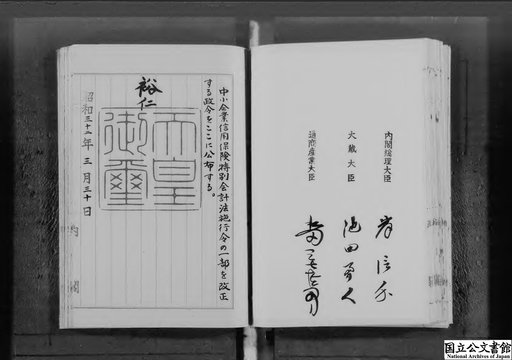 内閣総理大臣 岸信介
大蔵大臣 池田勇人
通商産業大臣
中小企業信用保険特別会計法施行令の一部を改正
する政令をここに公布する。
裕仁
天皇
御璽
昭和三十二年三月三十日
内閣
国立公文書館
National Archives of Japan